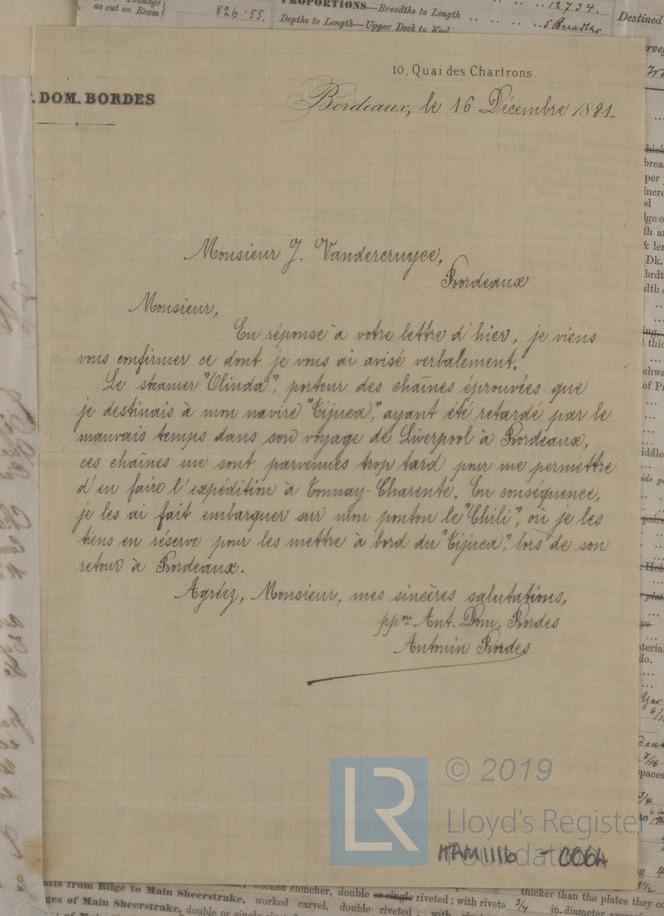 Tonnage
as cut on Beam
826.55.
PROPORTIONS—Breadths to Length
12.734.
Depths to Length—Upper Deck to Keel
Destined
10, Quai des Chartrons.
DOM. BORDES
Bordeaux, le 16 Décembre 1881.
Monsieur J. Vandercruyce,
Bordeaux
Monsieur,
En réponse à votre lettre d'hier, je viens
vous confirmer ce dont je vous ai avisé verbalement.
Le steamer "Olinda", porteur des chaînes éprouvées que
je destinais à mon navire "Tijuca", ayant été retardé par le
mauvais temps dans son voyage de Liverpool à Bordeaux,
ces chaînes me sont parvenues trop tard pour me permettre
d'en faire l'expédition à Tonnay-Charente. En conséquence,
je les ai fait embarquer sur mon ponton le "Chili", où je les
tiens en réserve pour les mettre à bord du "Tijuca", lors de son
retour à Bordeaux.
Agréez, Monsieur, mes sincères salutations,
ppon Ant. Dom. Bordes
Antonin Bordes
LR
© 2019
Lloyd's Register
Foundation
HAM111b - 0064
from Bilge to Main Sheerstrake, worked clencher, double or single riveted; with rivets 3/4
thicker than the plates they
ges of Main Sheerstrake, double or single
worked carvel, double riveted; with
in. diameter